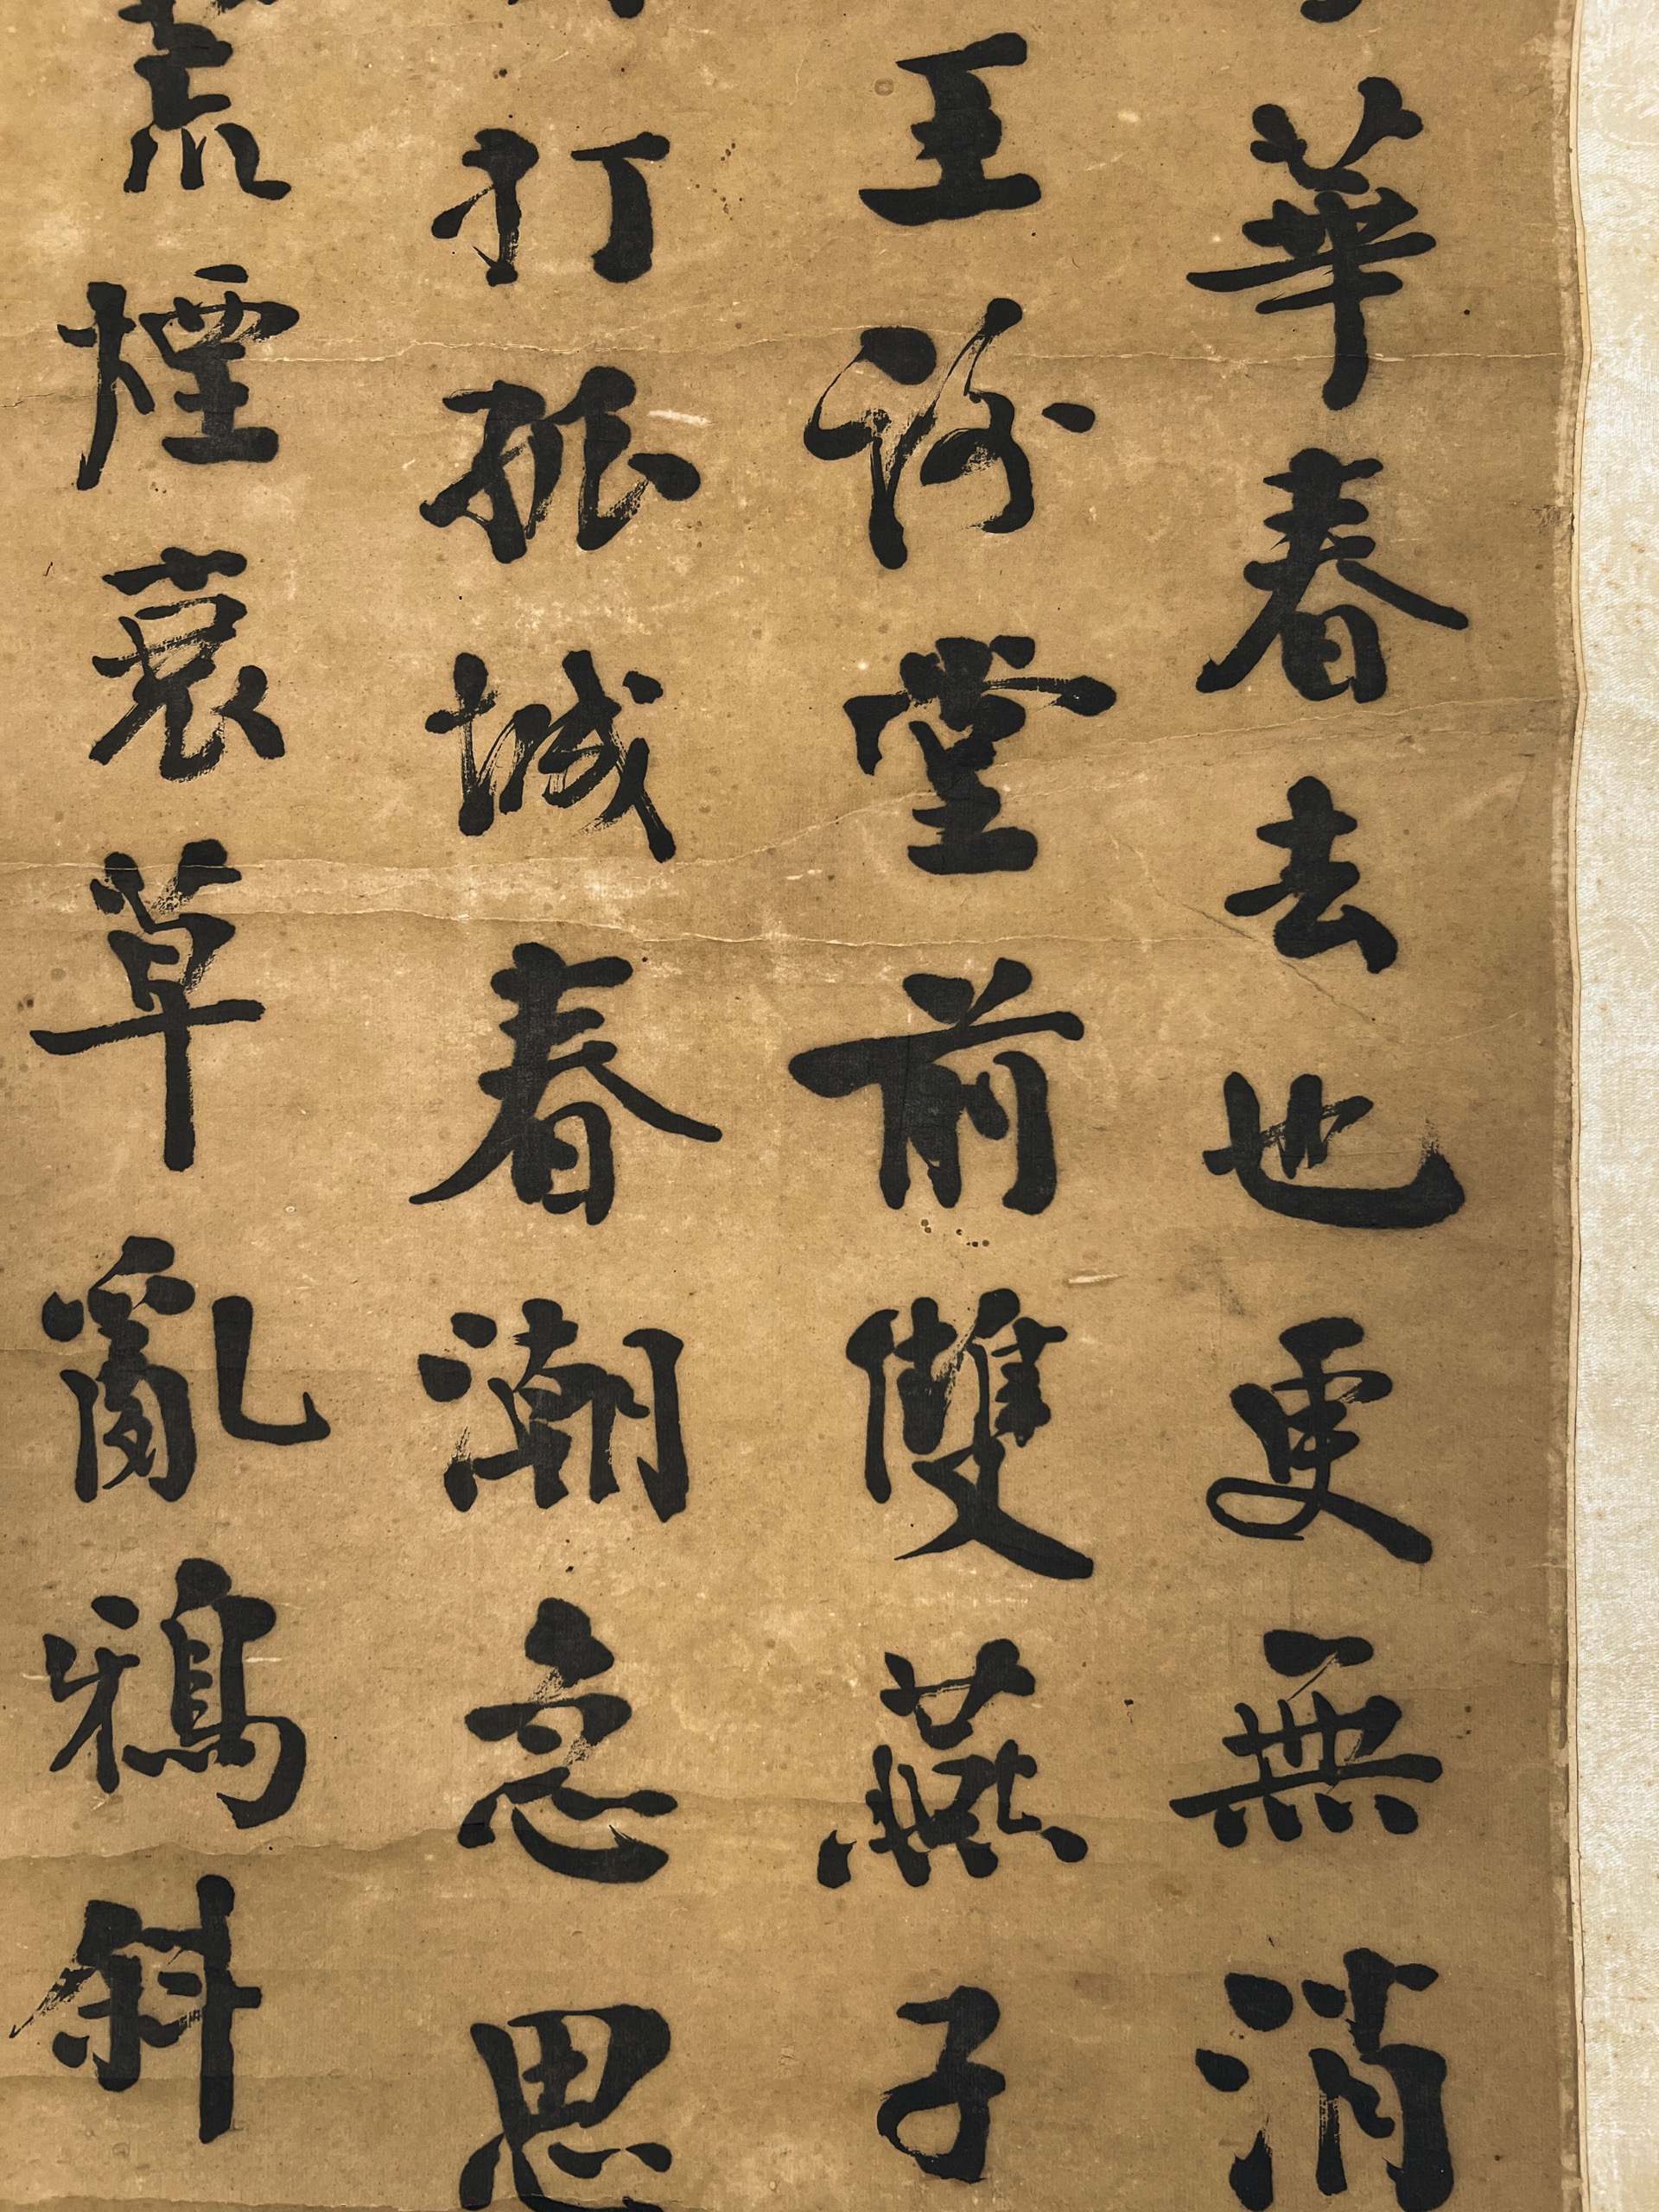 華春去也更無消
王謝堂前雙燕子
打孤城春潮急思
荒煙衰草亂鴉斜